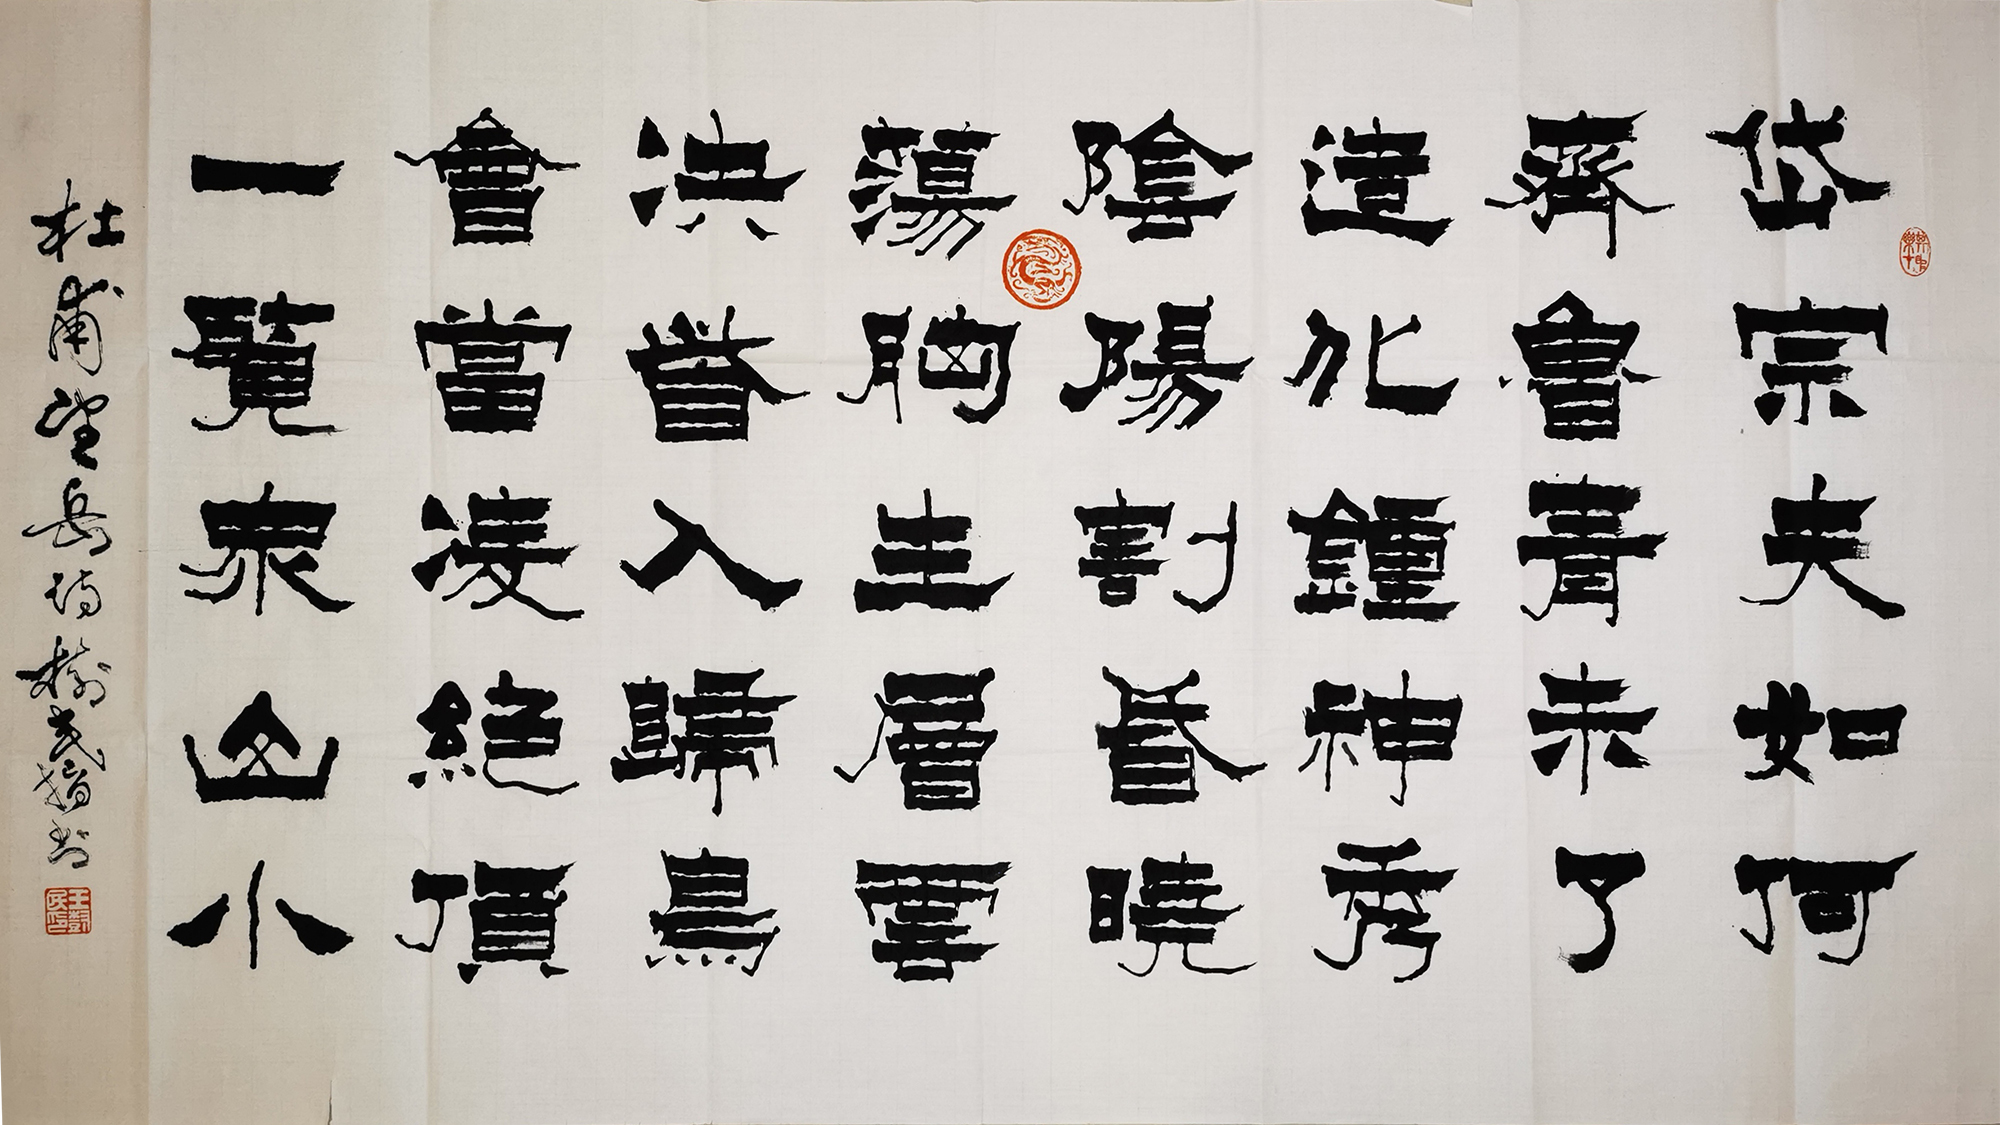 岱宗夫如何
齊魯青未了
造化鍾神秀
陰陽割昏曉
蕩胸生層雲
決眥入歸鳥
會當凌絕頂
一覽眾山小
杜甫望岳詩樹民揩書
王樹民印